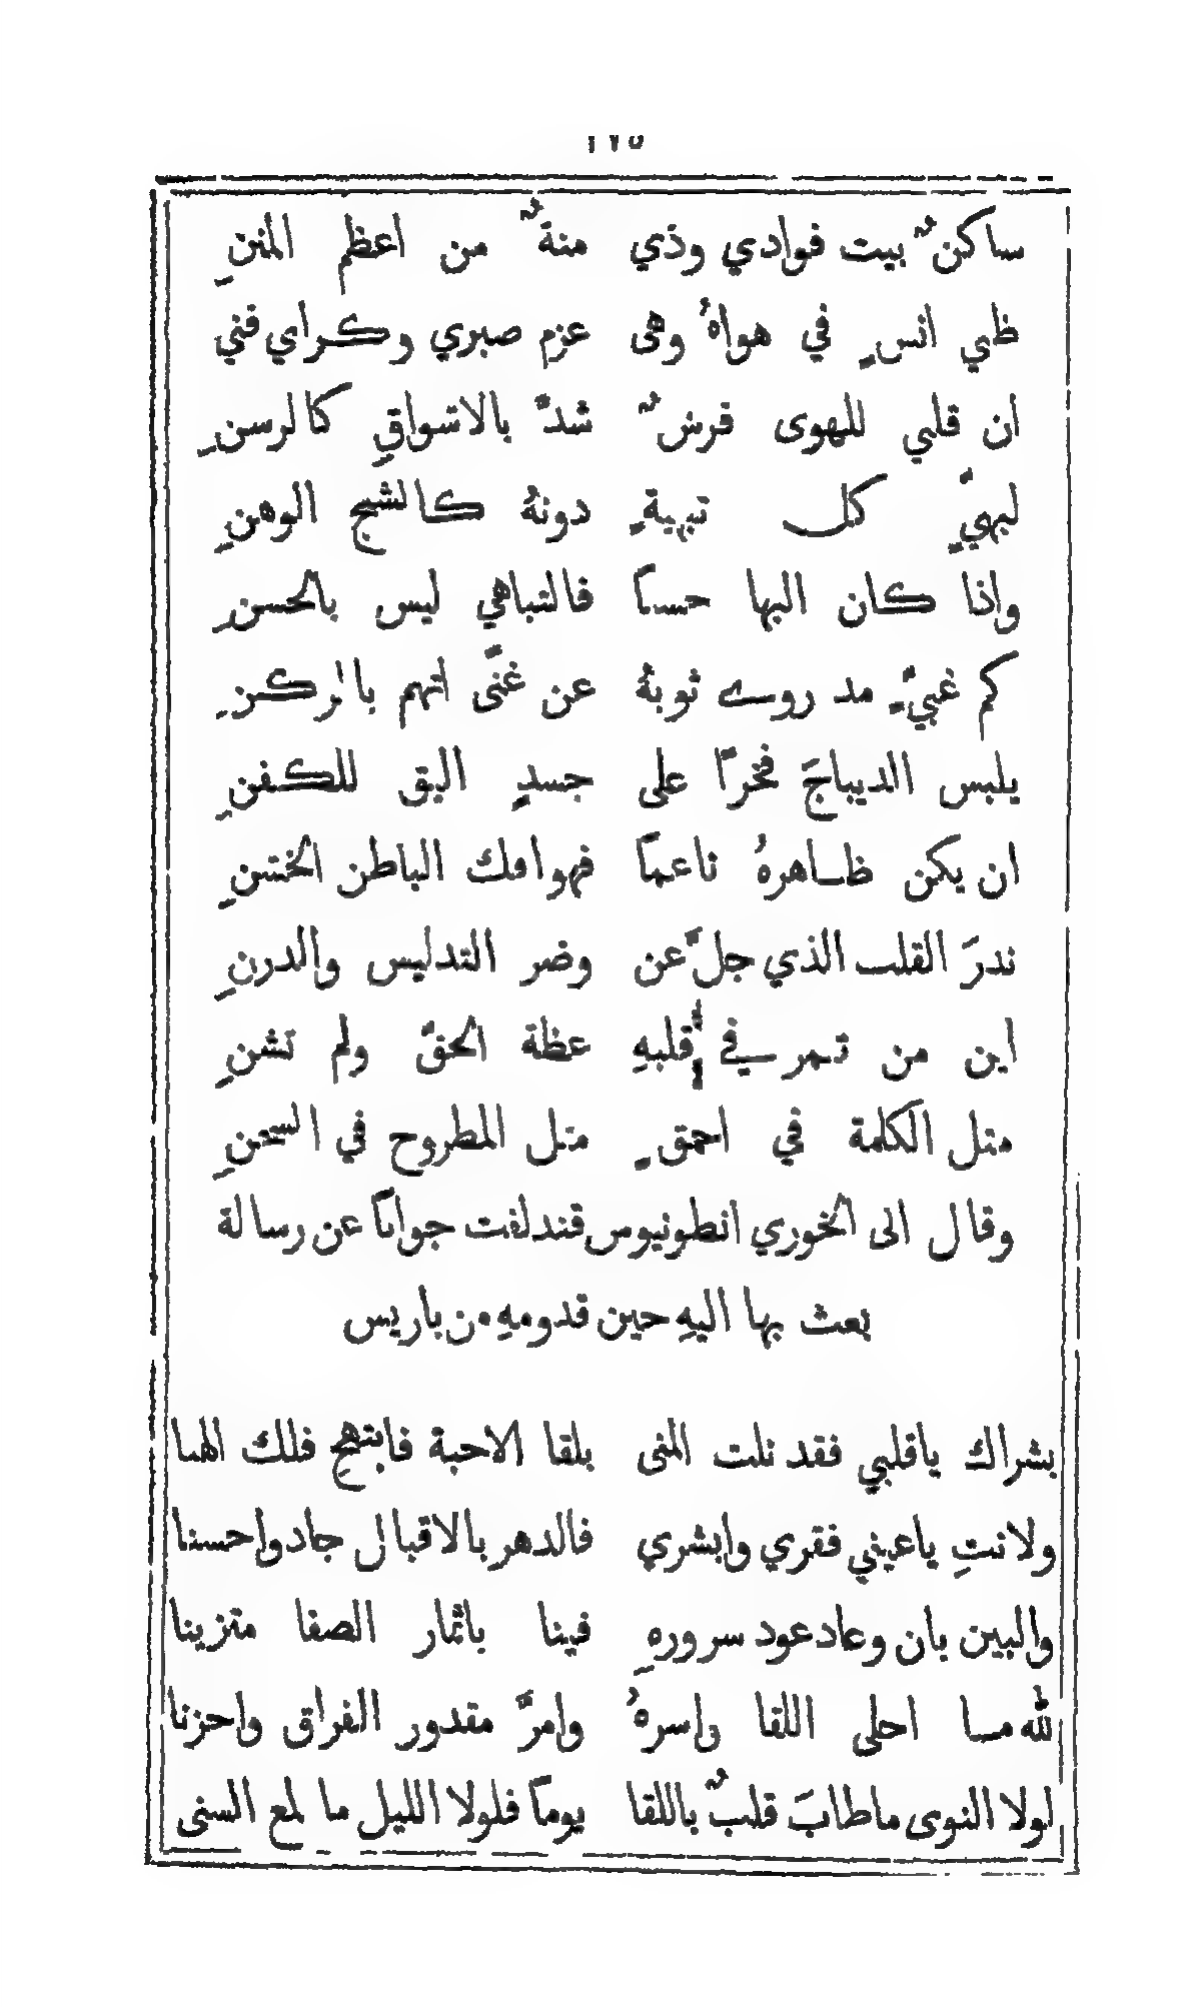 ساكنٌ بيت فوادي وذي منةٌ من اعظم المننِ
ظبي انسٍ في هواهُ وهى عزم صبري وكراي فني
ان قلبي للهوى فرسٌ شدَّ بالاشواقِ كالرسنِ
لبهيٍّ كل تبهيةٍ دونهُ كالشبح الوهنِ
واذا كان البها حسنًا فالتباهي ليس بالحسنِ
كم غبيٍّ مد روے ثوبهُ عن غنًى اتهم بالركنِ
يلبس الديباجَ فخرًا على جسدٍ اليق للكفنِ
ان يكن ظاهرهُ ناعمًا فهوافك الباطن الخشنِ
ندرَ القلب الذي جلَّ عن وضر التدليس والدرنِ
اين من تمر في قلبهِ عظة الحقّ ولم تشنِ
مثل الكلمة في احمقٍ مثل المطروح في السجنِ
وقال الى الخوري انطونيوس قندلفت جوابًا عن رسالة
بعث بها اليهِ حين قدومهِ من باريس
بشراك ياقلبي فقد نلت المنى بلقا الاحبة فابتهج فلك الهنا
ولانتِ ياعيني فقري وابشري فالدهر بالاقبال جاد واحسنا
والبين بان وعاد عود سرورهِ فينا باثمار الصفا متزينا
لله ما احلى اللقا واسرهُ وامرَّ مقدور الفراق واحزنا
لولا النوى ماطابَ قلبٌ باللقا يومًا فلولا الليل ما لمع السنى